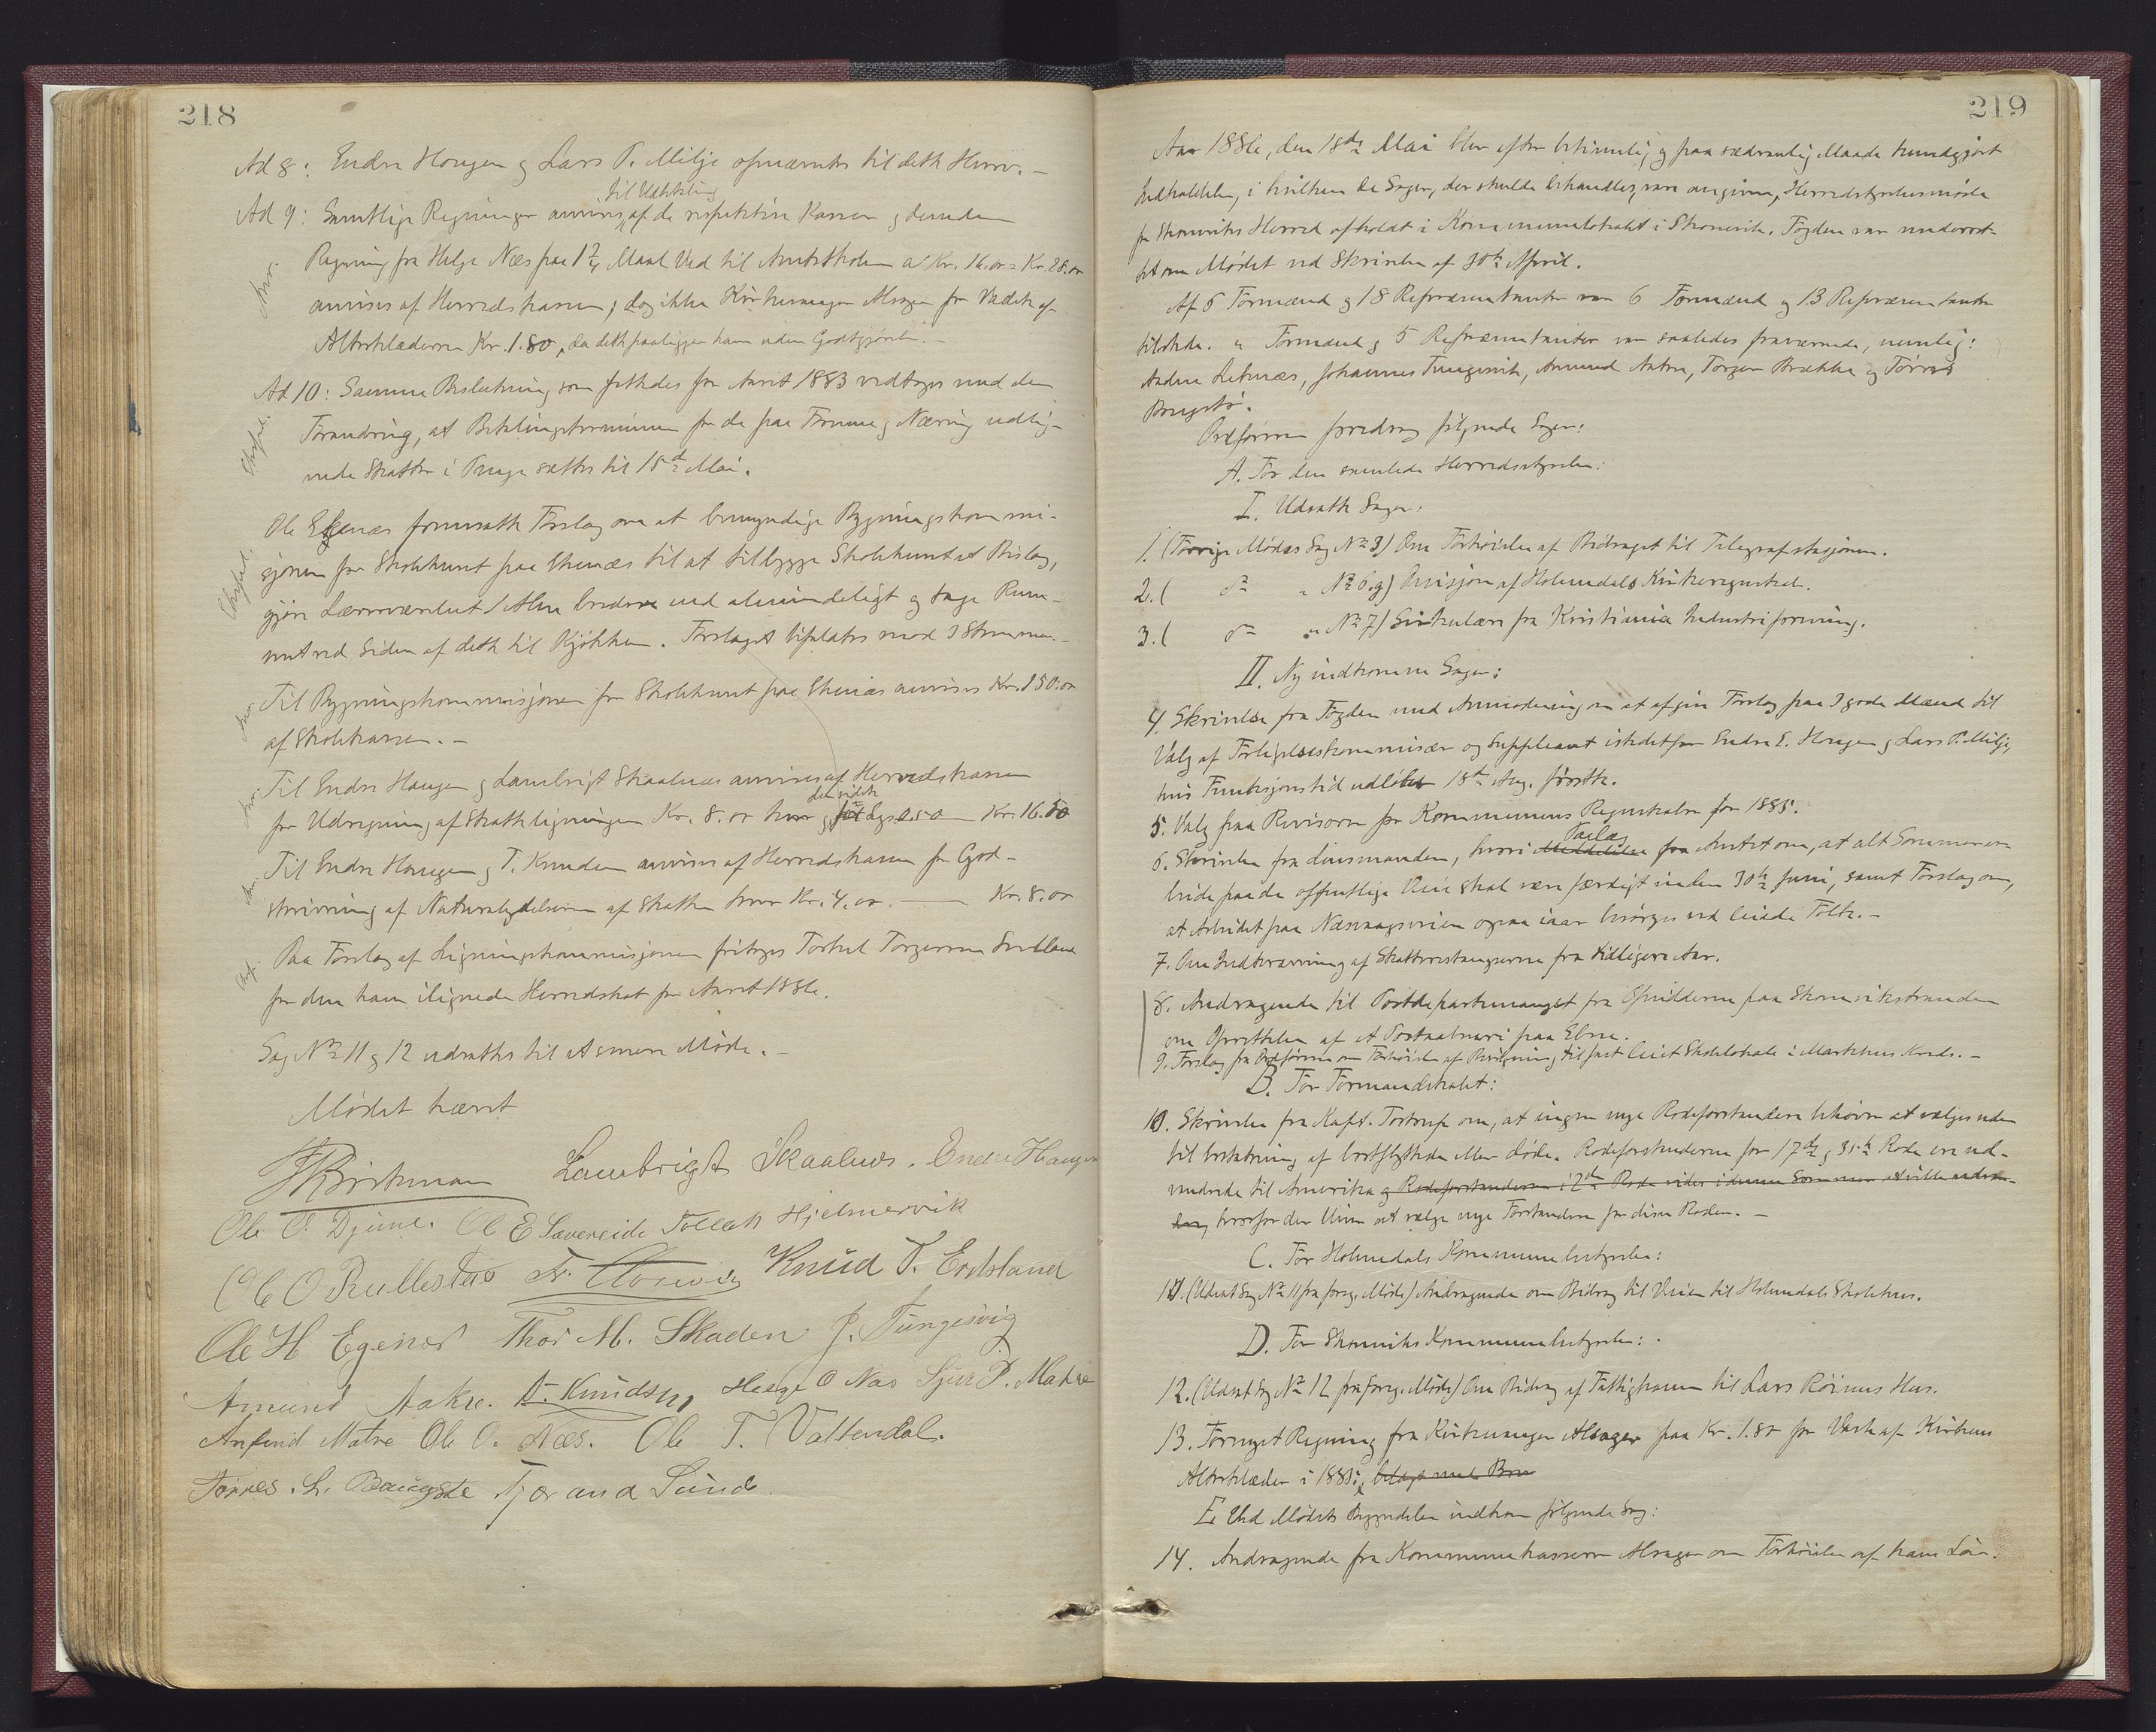 218
Ad 8: Endre Hougen og Lars P. Milje opnævntes til dette Hverv. –
til Udbetaling
Ad 9: Samtlige Regninger anvises af de respektive Kasser og desuden
Regning fra Helge Næs paa 1 3/4 Maal Ved til Amtsskolen a Kr. 16.00 = Kr. 28.00
Anv.
anvises af Herredskassen; dog ikke Kirkesanger Alsager for Vadsk af
Alterklæderne Kr. 1.80, da dette paaligger ham uden Godtgjørelse. –
Ad 10: Samme Beslutning som fattedes for Aaret 1883 vedtoges med den
Forandring, at Betalingsterminen for de paa Formue og Næring udlig-
nede Skatter i Penge sættes til 15de Mai.
Ole Egenæs fremsatte Forslag om at bemyndige Bygningskommi-
sjonen for Skolehuset paa Ekenæs til at tilbygge Skolehuset et Bislag,
gjøre Lærerværelset 1 Alen bredere end almindeligt og tage Rum-
met ved Siden af dette til Kjøkken. Forslaget bifaldtes med Stemmer. –
Til Bygningskommisjonen for Skolehuset paa Ekenæs anvises Kr. 150.00
Anv.
af Skolekassen. –
Til Endre Haugen og Lambrigt Skaalnes anvises af Herredskassen
for Udregning af Skatteligningen Kr. 8.00 hver og 0.50 – Kr. 16.50
Til Endre Haugen og T. Knudsen anvises af Herredskassen for God-
skrivning af Naturalydelserne af Skatten hver Kr. 4.00. – Kr. 8.00
Paa Forslag af Ligningskommisjonen fritages Torkel Torgersen
for den ham ilignede Herredskat for Aaret 1886.
Sag No 11 og 12 udsattes til et senere Møde. –
Mødet hævet
Lambrigt Skaalnes. Endre Haugen
Ole O. Djuve. Ole E Sævereide Tollak Hjelmervik
Ole O Rullestad Knud T. Erdsland
Ole H Egenes Thor M. Skaden J. Tungesvig
Amund Aakre. T. Knudsen Helge O Næs Sjur P. Matre
Anfind Matre Ole O. Næs. Ole T. Valtendal.
Tørres. L. Baugstø Tjerand Sunde
219
Aar 1886, den 18de Mai blev efter betimelig og paa sædvanlig Maade kundgjort
Indkaldelse, i hvilken de Sager, der skulde behandles, vare angivne, Herredsstyrelsesmøde
for Skoneviks Herred afholdt i Kommunelokalet i Skonevik. Fogden var underret-
tet om Mødet ved Skrivelse af 30te April.
Af 6 Formænd og 18 Repræsentanter var 6 Formænd og 13 Repræsentanter
tilstede. " Formænd og 5 Repræsentanter var saaledes fraværende, nemlig:
Anders Leknæs, Johannes Tungesvik, Amund Aakre, Torger Brekke og Tørres
Baugstø.
Ordføreren foredrog følgende Sager:
A. For den samlede Herredsstyrelse:
I. Udsatte Sager:
1. (Forrige Mødes Sag No 3) Om Forhøielse af Bidraget til Telegrafstasjonen.
2. ( do " No 6.g) Desisjon af Holmedals Kirkeregnskab.
3. ( do " No 7) Sirkulære fra Kristiania Industriforening.
II. Ny indkomne Sager:
4. Skrivelse fra Fogden med Anmodning om at afgive Forslag paa 3 gode Mænd til
Valg af Forligelseskommisær og Suppleant istedetfor Endre E. Hougen og Lars P. Milje,
hvis Funksjonstid udløber 18de Aug. førstk.
5. Valg paa Revisorer for Kommunens Regnskaber for 1885.
Paalæg
6. Skrivelse fra Lensmanden, hvori Meddelelse fra Amtet om, at alt Sommerar-
beide paa de offentlige Veie skal være færdigt inden 30te Juni, samt Forslag om,
at Arbeidet paa ogsaa iaar besørges ved leiede Folk. –
7. Om Indkrævning af Skatterestangserne fra tidligere Aar.
8. Andragende til Postdepartemanget fra Opsidderne paa Skonevikstranden
om Oprettelse af et Postaabneri paa Ebne.
9. Forslag fra Ordføreren om Forhøielse af til fast leiet Skolelokale i Markhus Kreds. –
B. For Formandskabet:
10. Skrivelse fra Kapt. Tostrup om, at ingen nye Rodeforstandere behøver at vælges uden
til Erstatning af bortflyttede eller døde. Rodeforstanderne for 17de og 31te Rode ere ud-
vandrede til Amerika og Rodeforstanderen i 2den Rode i denne Sommer at ville udvan-
dre, hvorfor der bliver at vælge nye Forstandere for disse Roder. –
C. For Holmedals Kommunebestyrelse:
11. (Udsat Sag No 11 fra forrg. Møde) Andragende om Bidrag til Veien til Holmedals Skolehus.
D. For Skoneviks Kommunebestyrelse: .
12. (Udsat Sag No 12 fra forrg. Møde) Om Bidrag af Fattigkassen til Lars Røines Hus.
13. Fornyet Regning fra Kirkesanger Alsager paa Kr. 1.80 for Vask af Kirkens
Alterklæder i 1885,
E. Ved Mødets Begyndelse indkom følgende Sag:
14. Andragende fra Kommunekasserer Alsager om Forhøielse af hans Løn.